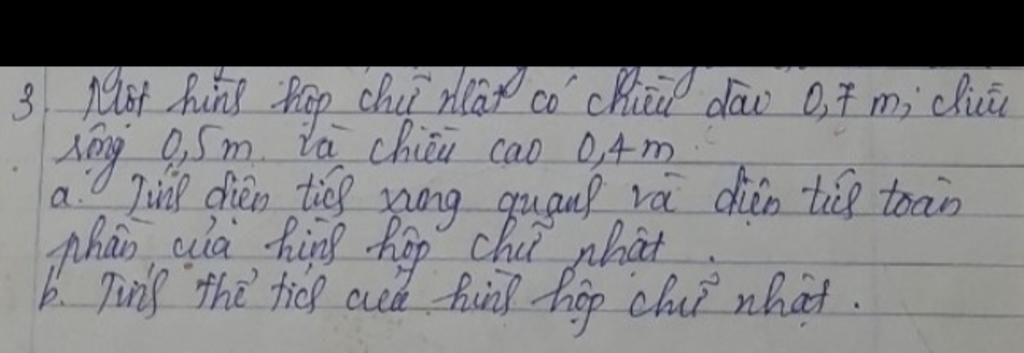 3. Một hình hộp chữ nhật có chiều dài 0,7 m; chiều
rộng 0,5m và chiều cao 0,4m
a. Tính diện tích xung quanh và diện tích toàn
phần của hình hộp chữ nhật.
b. Tính thể tích của hình hộp chữ nhật.